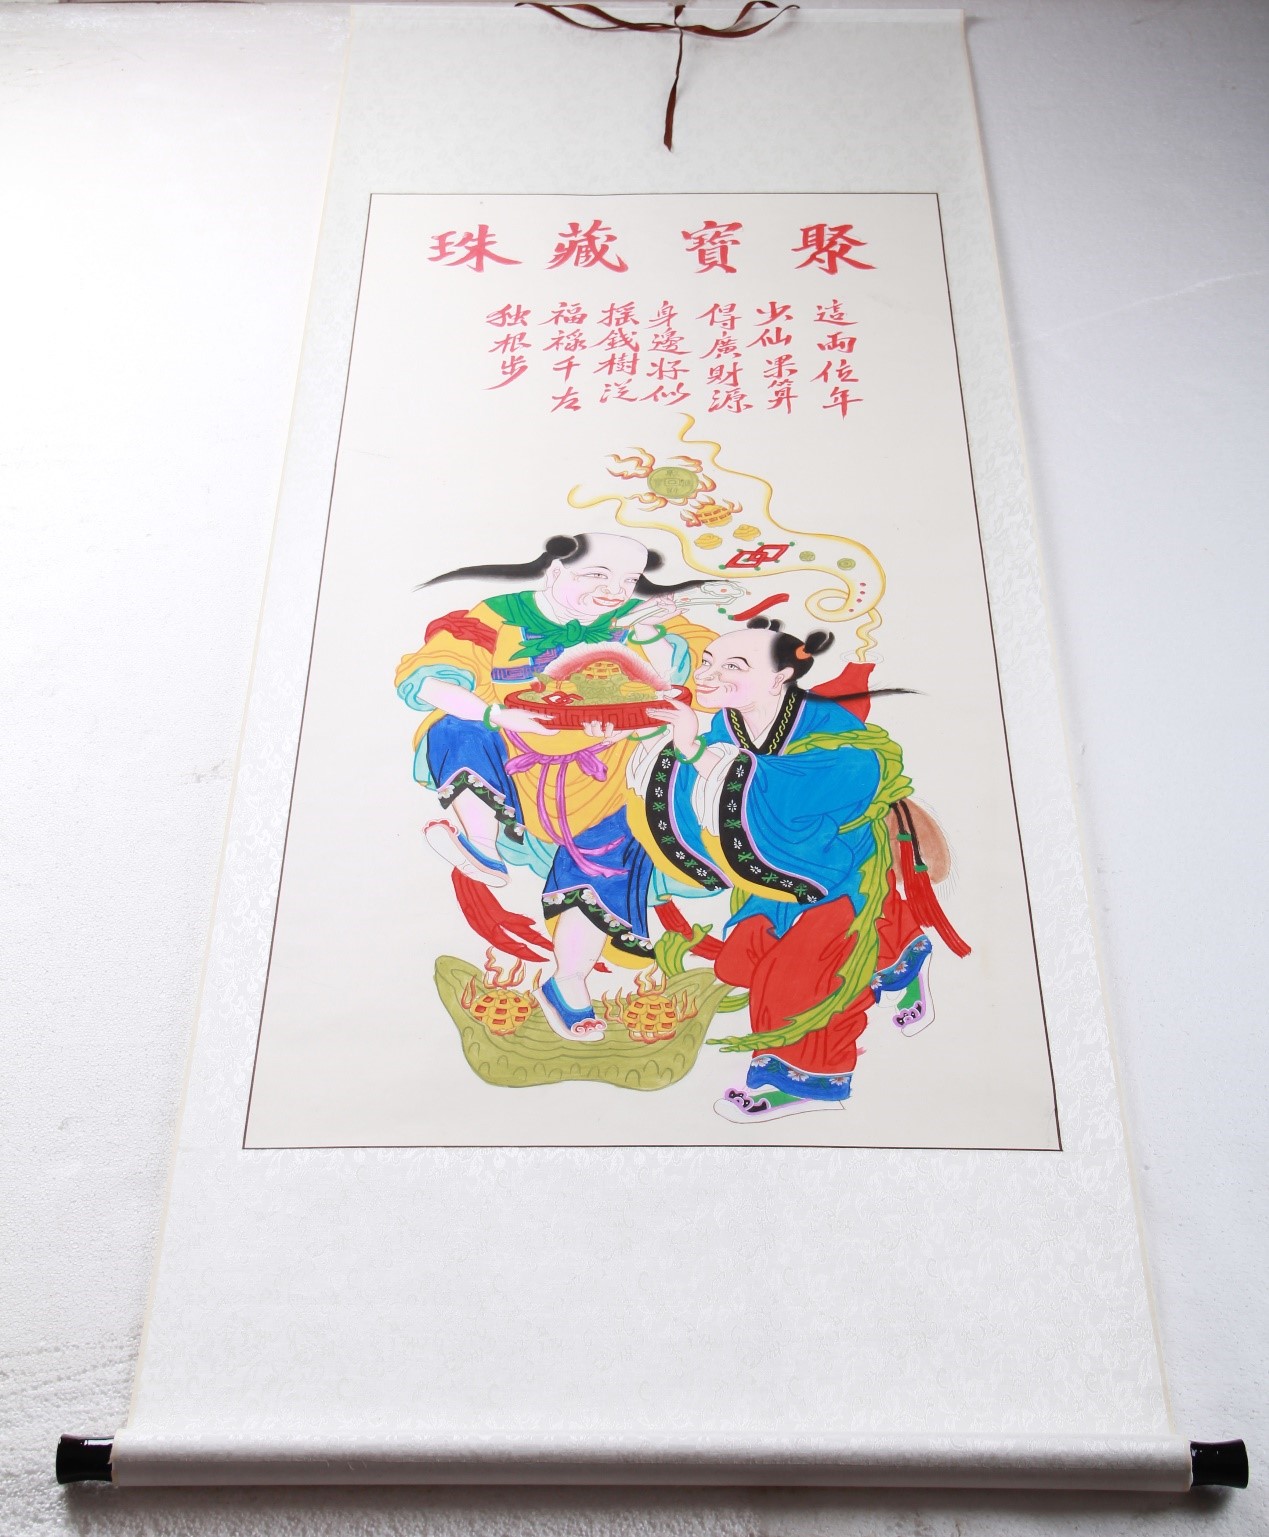 聚寶藏珠
這兩位年
少仙果算
得廣財源
身邊好似
摇錢樹從
福禄千左
独根步